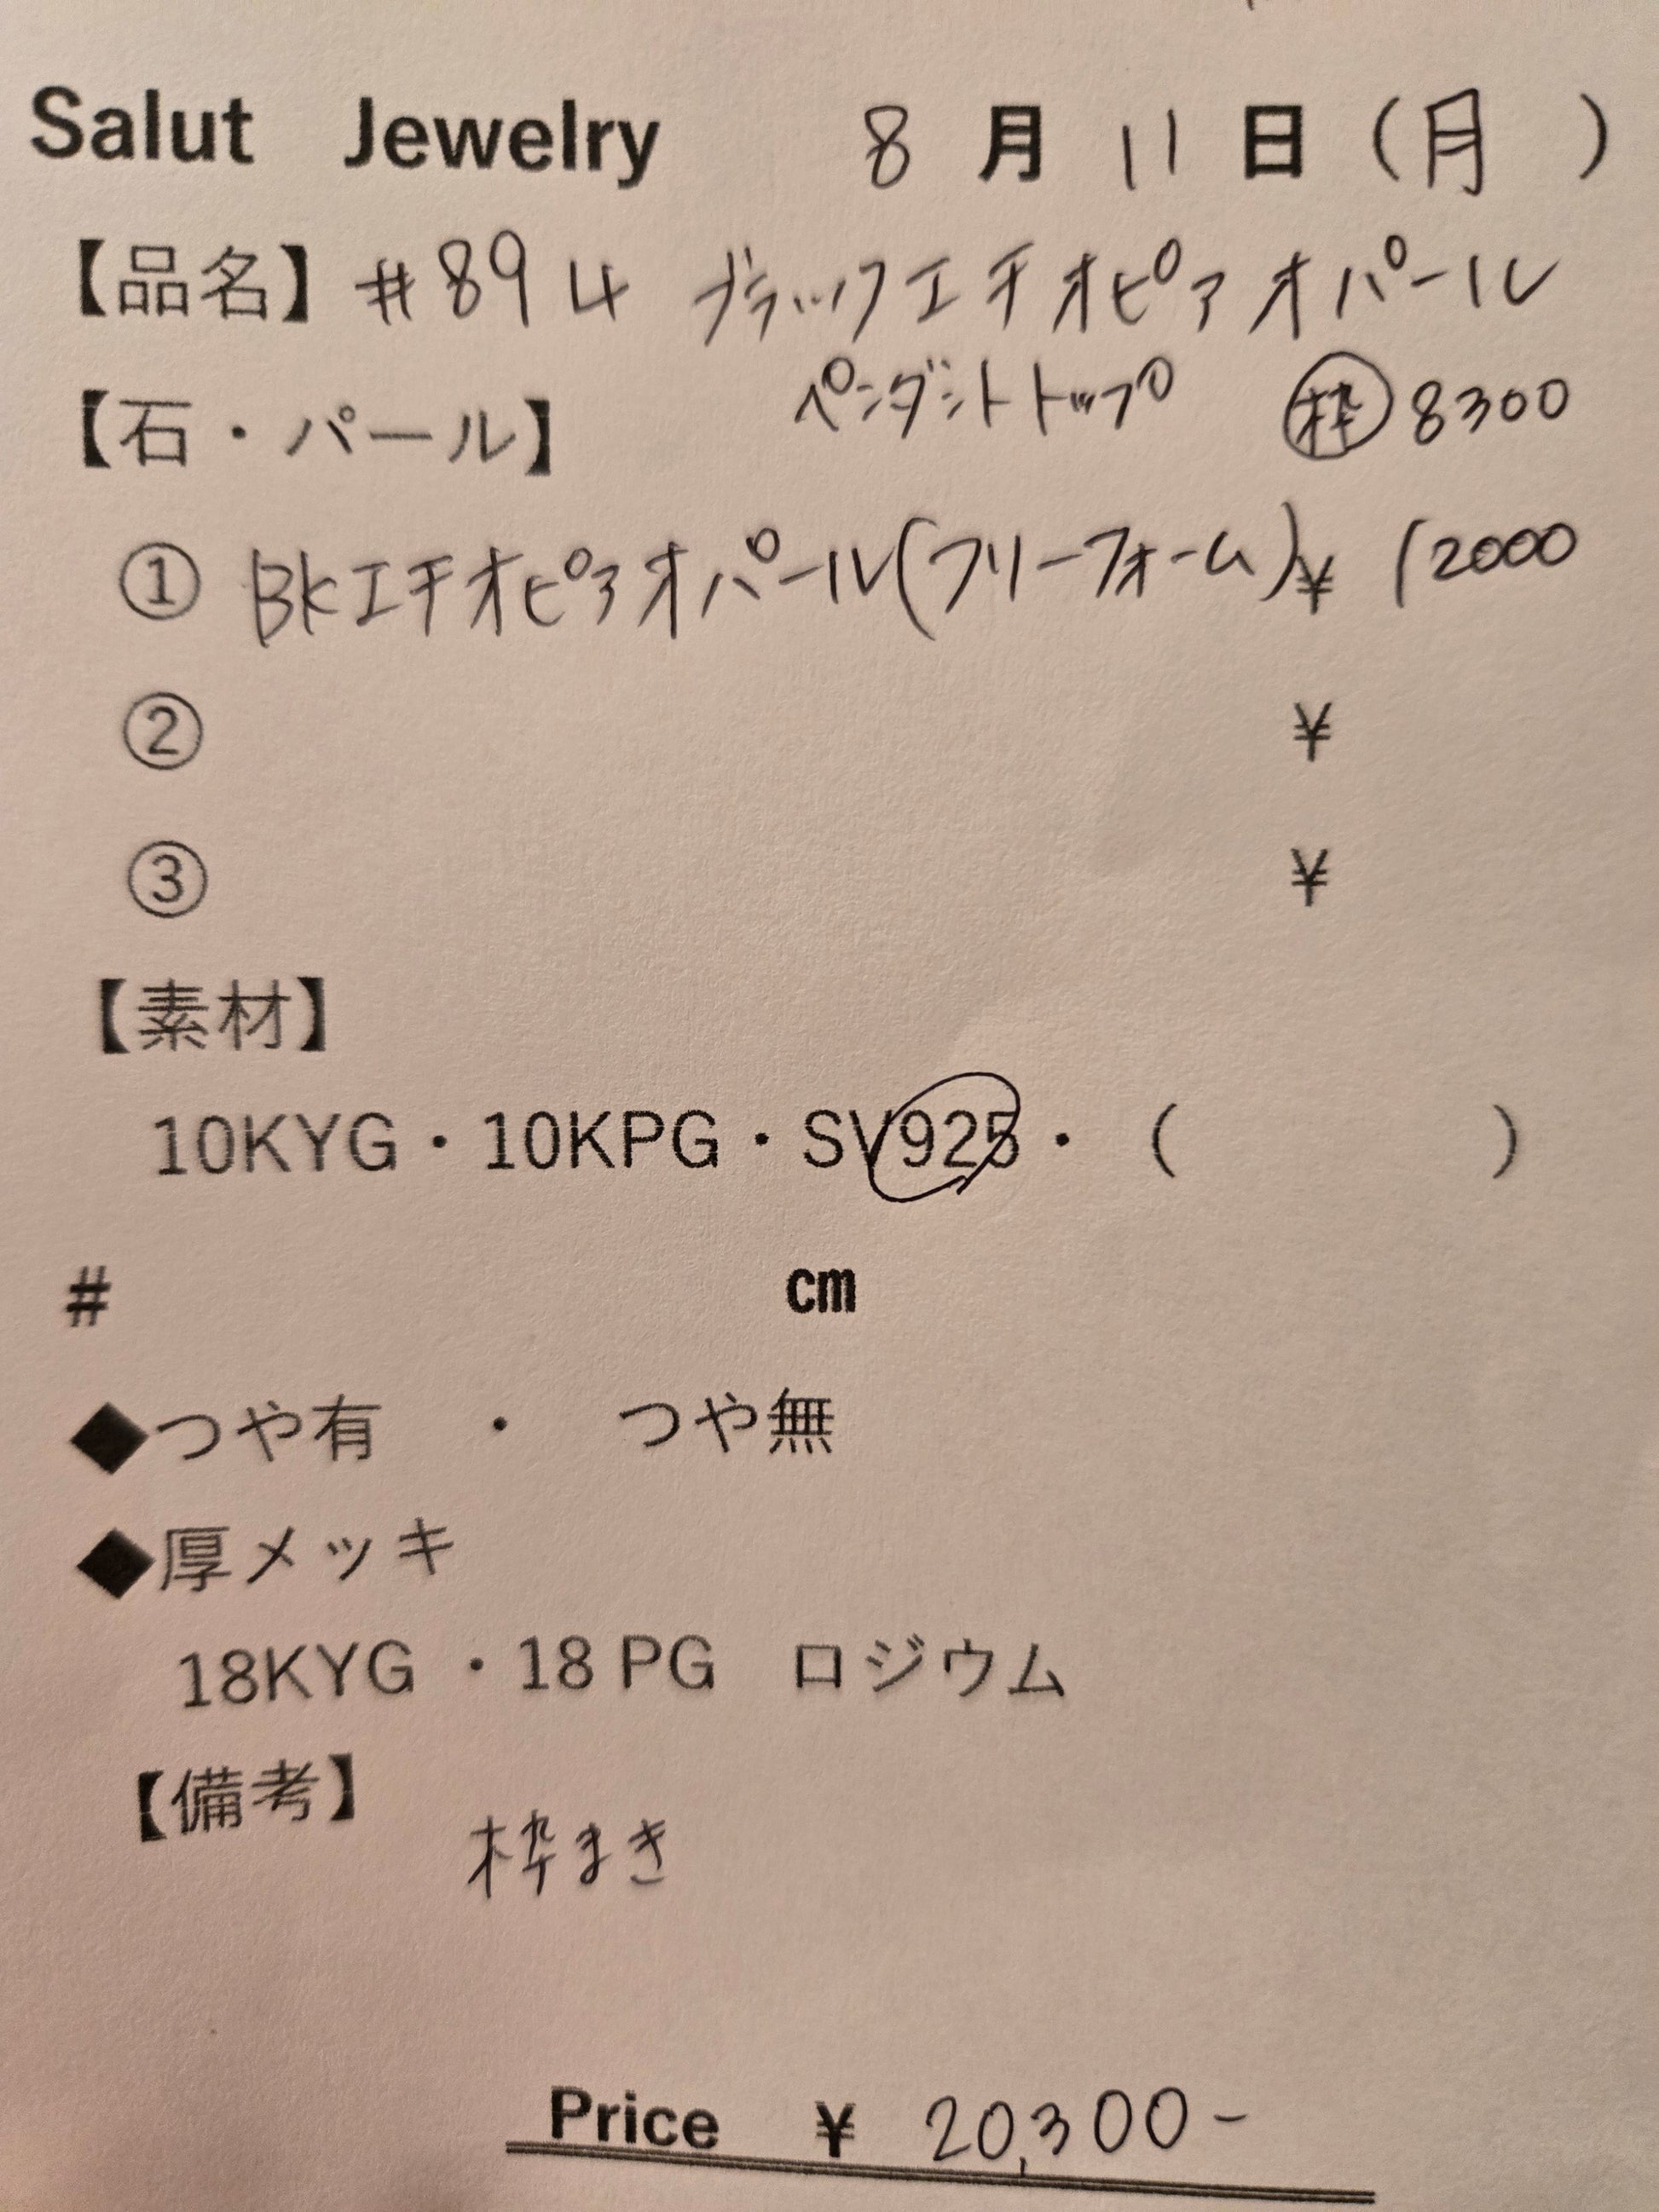 Salut Jewelry 8 月 11 日 (月 )
【品名】 #894 ブラックエチオピアオパール
ペンダントトップ ㊗枠 8300
【石・パール】
① BKエチオピアオパール(フリーフォーム) ¥ 12000
② ¥
③ ¥
【素材】
10KYG・10KPG・SV925・( )
# cm
◆つや有 ・ つや無
◆厚メッキ
18KYG ・18 PG ロジウム
【備考】
枠まき
Price ¥ 20,300-